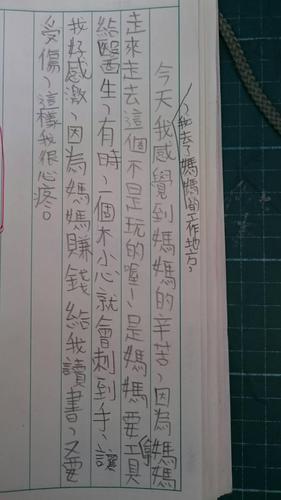 、我去了媽媽的工作地方，
今天我感覺到媽媽的辛苦、因為媽媽
走來走去這個不是玩的喔!、是媽媽要工具
給醫生、有時、一個不小心就會刺到手、讓
我好感激、因為媽媽賺錢給我讀書、又要
受傷、這樣我很心疼。